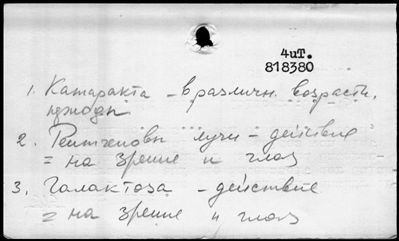 чит.
818380
1. Катаракта – в различн. возрастн.
периоды
2. Рентгеновы лучи – действие
= на зрение и глаз
3. Галактоза – действие
= на зрение и глаз